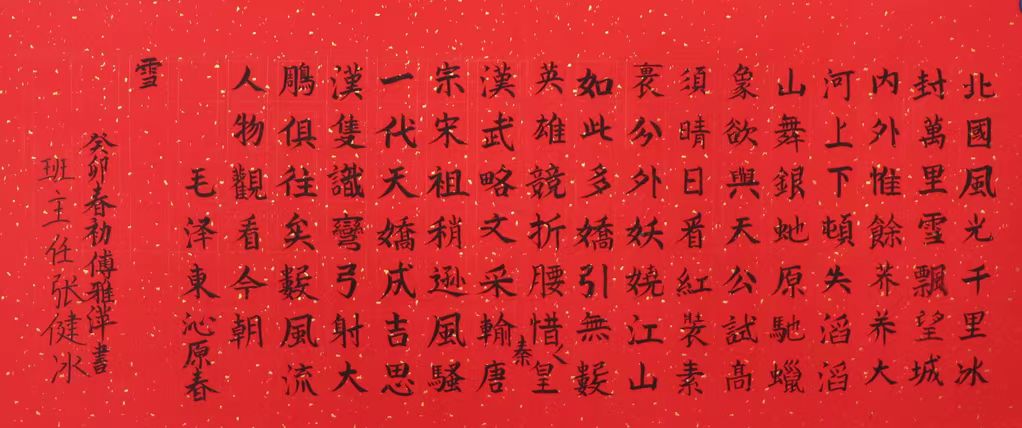 北國風光千里冰
封萬里雪飄望城
内外惟餘莽莽大
河上下頓失滔滔
山舞銀虵原馳蠟
象欲與天公試高
須晴日看紅裝素
裹分外妖嬈江山
如此多嬌引無數
英雄競折腰惜秦皇
漢武略文采輸唐
宗宋祖稍遜風騷
一代天嬌成吉思
漢隻識彎弓射大
鵰俱往矣數風流
人物觀看今朝
毛泽東沁原春
雪
癸卯春初傅雅萍書
班主任张健冰